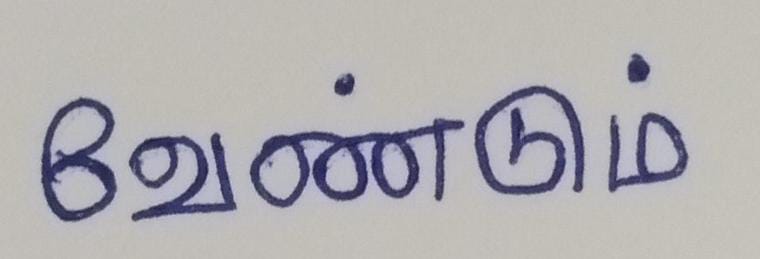 வேண்டும்